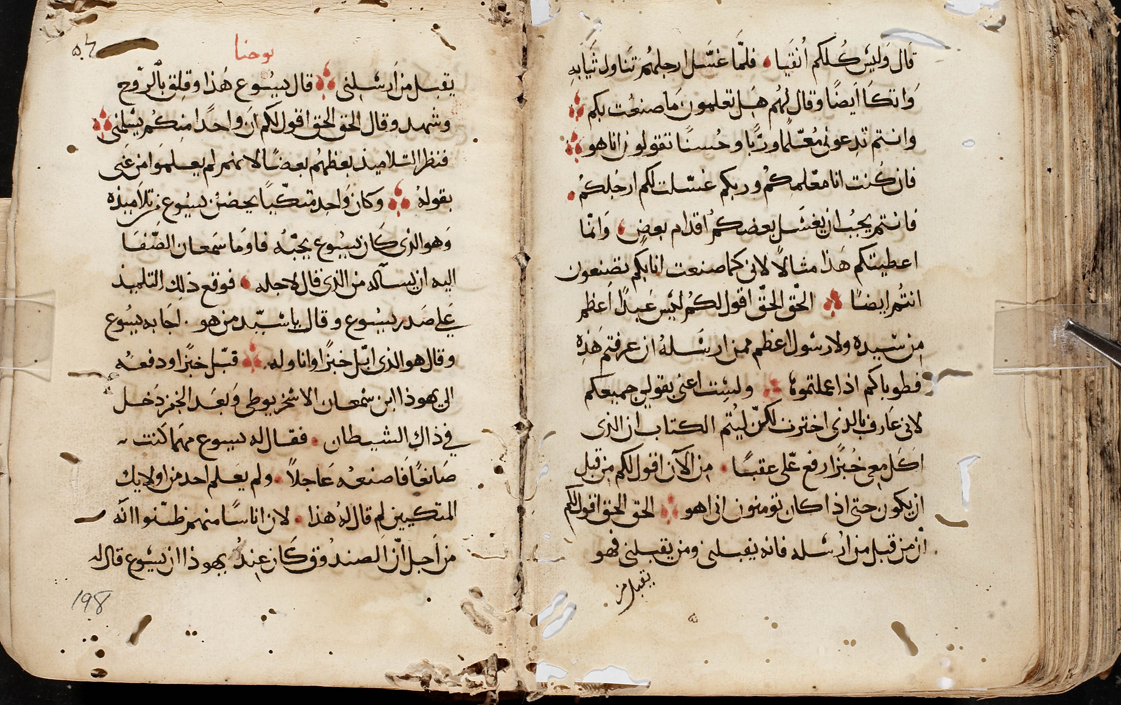 قال وليس كلكم أنقيا فلما غسل ارجلهم تناول ثيابه
واتكا أيضا وقال لهم هل تعلمون ما صنعت بكم
وانتم تدعونى معلما وربا وحسنا تقولون انا هو
فان كنت انا معلمكم وربكم غسلت لكم ارجلكم
فانتم يجب ان يغسل بعضكم اقدام بعض وانما
اعطيتكم هذا مثالا لانى كما صنعت انا بكم تصنعون
انتم ايضا الحق الحق اقول لكم ليس عبدا اعظم
من سيده ولا رسول اعظم ممن ارسله ان عرفتم هذه
فطوباكم اذا عملتموها وليس اعنى بقولى جميعكم
لانى عارف بالذى اخترت لكن ليتم الكتاب ان الذى
اكل معى خبزا رفع على عقبا من الآن اقول لكم من قبل
ان يكون حتى اذا كان تومنون انى اهو الحق الحق اقول لكم
ان من قبل من ارسله فانه يقبلنى ومن يقبلنى فهو
يقبل من
يوحنا
يقبل من أرسلنى قال يسوع هذا وقلق بالروح
وشهد وقال الحق الحق اقول لكم ان واحدا منكم يسلمنى
فنظر التلاميذ بعظهم بعضا لانهم لم يعلموا من عنى
بقوله وكان واحد متكيا بحضن يسوع من تلاميذه
وهو الذى كان يسوع يحبه فاوما سمعان الصفا
اليه ان يساله من الذى قال لاجله فوقع ذلك التلميذ
على صدر يسوع وقال يا سيد من هو اجابه يسوع
وقال هو الذى ابل خبزا واناوله فبل خبزا ودفعه
الى يهوذا ابن سمعان الاسخريوطى وبعد الخبز دخل
فى ذاك الشيطان فقال له يسوع مهما كنت
صانعا فاصنعه عاجلا ولم يعلم احد من اولايك
المتكيين لم قال له هذا لان اناسا منهم ظنوا انه
من اجل أن الصندوق كان عند يهوذا ان يسوع قال له
198